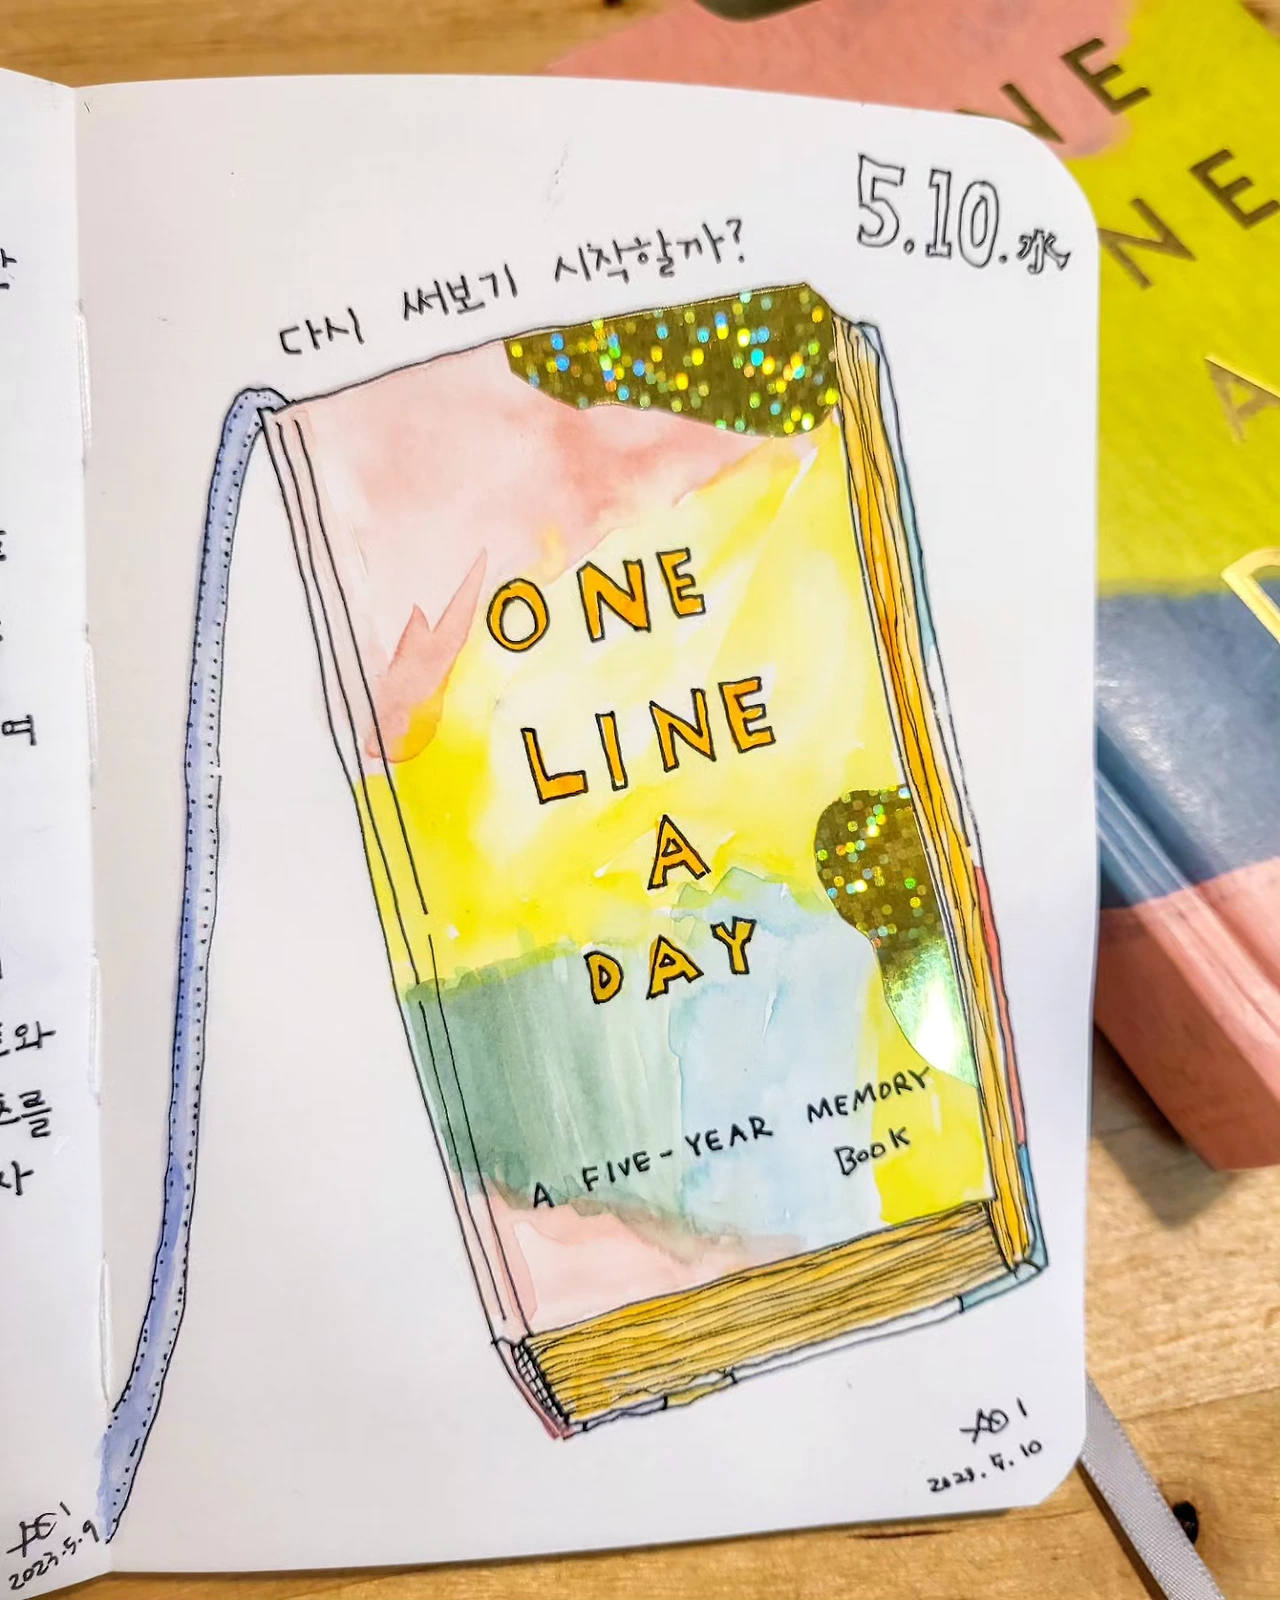 5.10.水
다시 써보기 시작할까?
ONE
LINE
A
DAY
A FIVE-YEAR MEMORY
BOOK
2023.5.10
와
를
사
2023.5.9
NE
NE
A